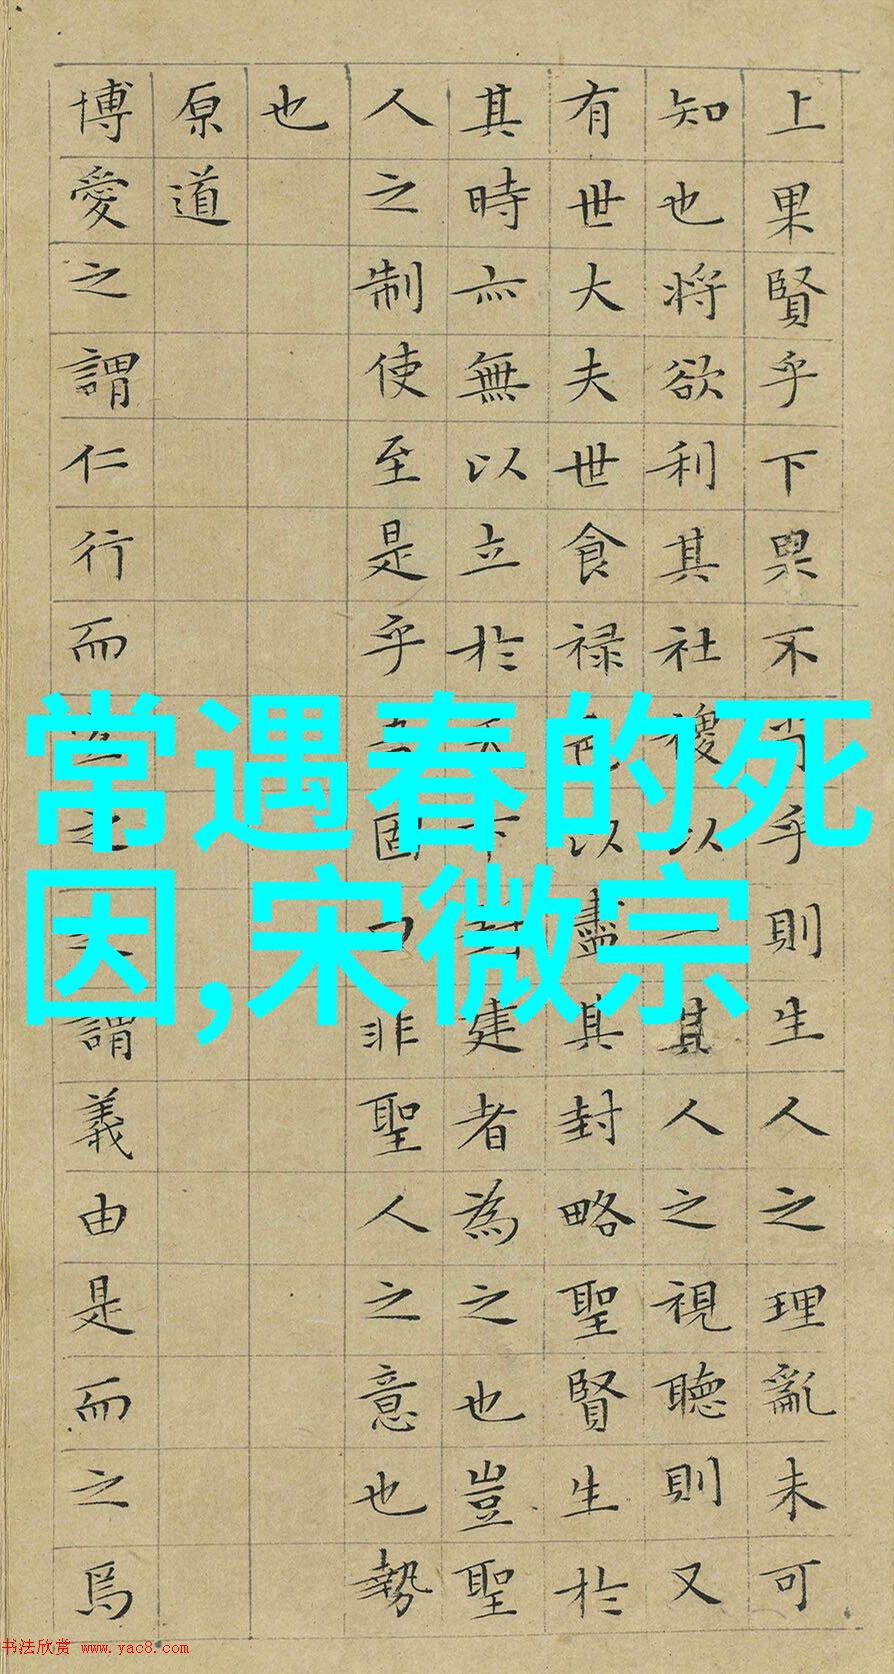 上果賢乎下果不肖乎則生人之理亂未可
知也將欲利其社稷以一其人之視聽則又
有世大夫世食禄邑以盡其封略聖賢生於
其時亦無以立於天下封建者為之也豈聖
人之制使至是乎吾固曰非聖人之意也勢
也
原道
博愛之謂仁行而宜之之謂義由是而之焉
常遇春的死
因,宋微宗
书法欣赏 www.yac8.com